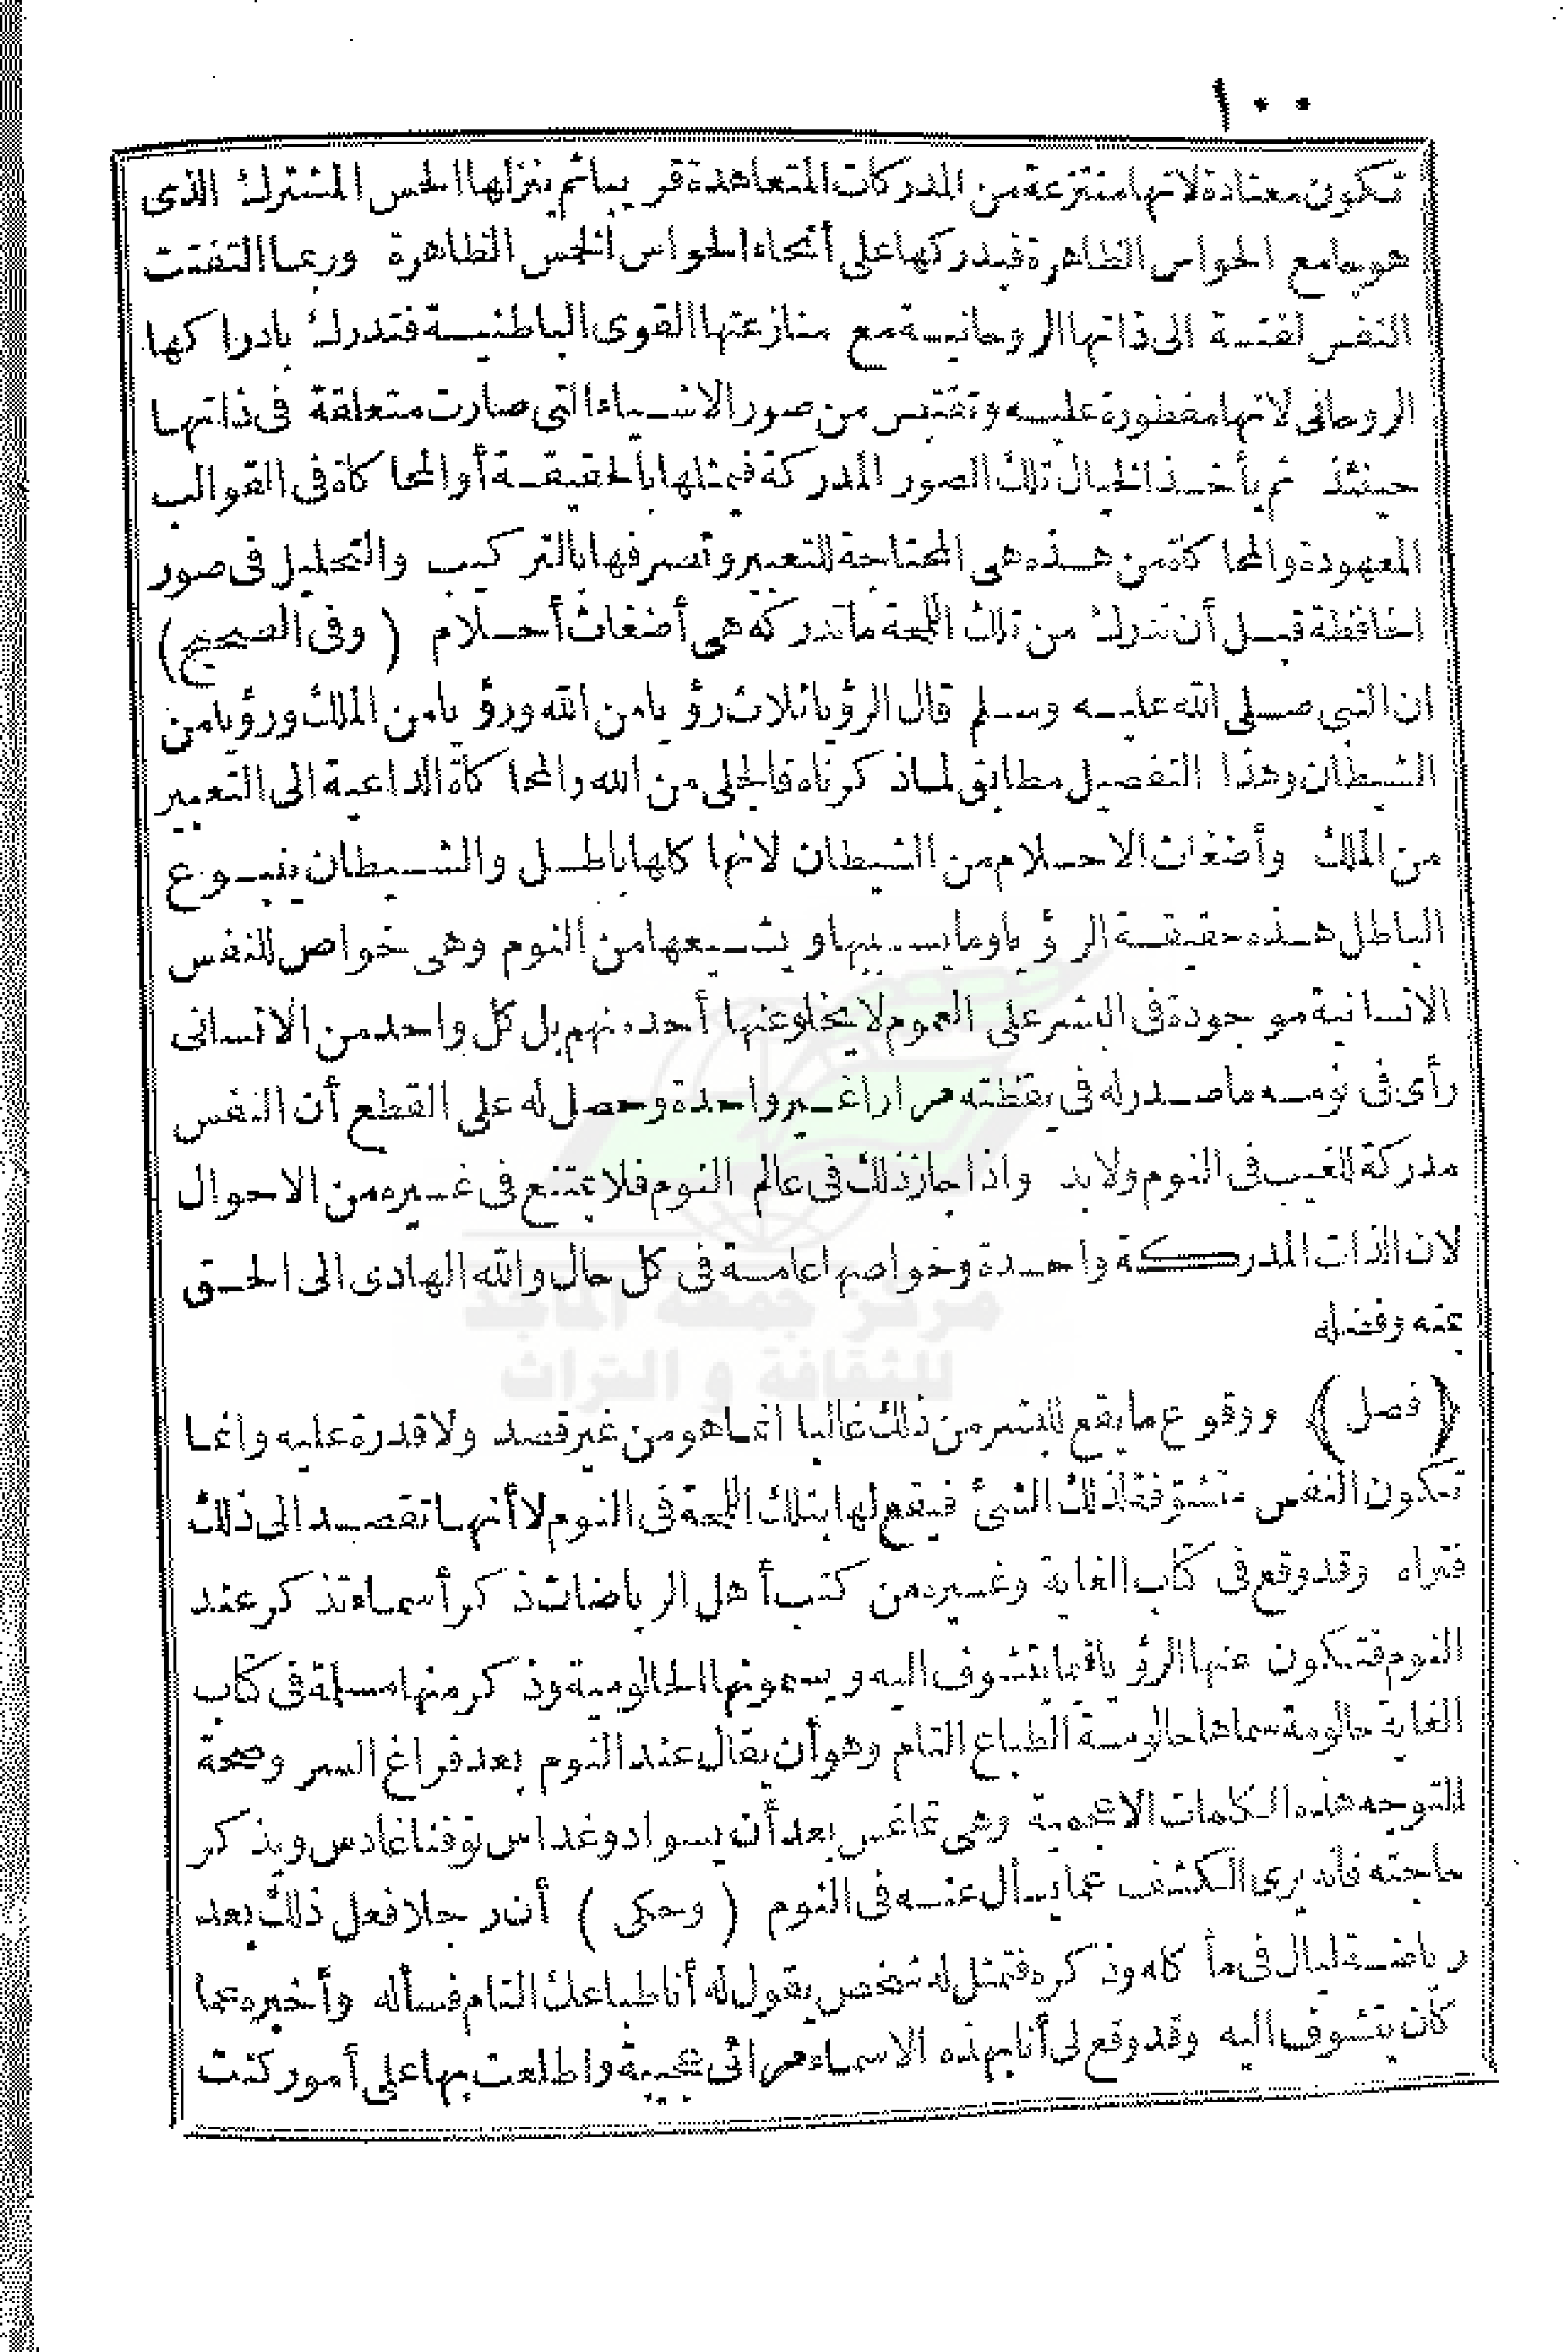 ١٠٠
تكون معتادة لانها منتزعة من المدركات المتعاهدة قريبا ثم ينزلها الحس المشترك الذى
هو جامع الحواس الظاهرة فيدركها على أنحاء الحواس الخمس الظاهرة وربما التفتت
النفس لفتة الى ذاتها الروحانية مع منازعتها القوى الباطنية فتدرك بادراكها
الروحانى لانها مفطورة عليه وتقتبس من صور الاشياء التى صارت متعلقة فى ذاتها
حينئذ ثم يأخذ الخيال تلك الصور المدركة فيمثلها بالحقيقة أو المحاكاة فى القوالب
المعهودة والمحاكاة من هذه هى المحتاجة للتعبير وتصرفها بالتركيب والتحليل فى صور
الحافظة قبل أن تدرك من تلك اللمحة ما تدركه هى أضغاث أحلام (وفى الصحيح)
ان النبى صلى الله عليه وسلم قال الرؤيا ثلاث رؤيا من الله ورؤيا من الملك ورؤيا من
الشيطان وهذا التفصيل مطابق لما ذكرناه فالجلى من الله والمحاكاة الداعية الى التعبير
من الملك وأضغاث الاحلام من الشيطان لانها كلها باطل والشيطان ينبوع
الباطل هذه حقيقة الرؤيا وما يسببها ويشيعها من النوم وهى خواص للنفس
الانسانية موجودة فى البشر على العموم لا يخلو عنها أحد منهم بل كل واحد من الانسانى
رأى فى نومه ما صدر له فى يقظته مرارا غير واحدة وحصل له على القطع أن النفس
مدركة للغيب فى النوم ولا بد واذا جاز ذلك فى عالم النوم فلا يمتنع فى غيره من الاحوال
لان الذات المدركة واحدة وخواصها عامة فى كل حال والله الهادى الى الحق
بمنه وفضله
﴿فصل﴾ ووقوع ما يقع للبشر من ذلك غالبا انما هو من غير قصد ولا قدرة عليه وانما
تكون النفس متشوفة لذلك الشئ فيقع لها بتلك اللمحة فى النوم لا أنها تقصد الى ذلك
فتراه وقد وقع فى كتاب الغاية وغيره من كتب أهل الرياضات ذكر أسماء تذكر عند
النوم فتكون عنها الرؤيا فيما يتشوف اليه ويسمونها الحالومية وذكر منها مسلمة فى كتاب
الغاية حالومة سماها حالومة الطباع التام وهو أن يقال عند النوم بعد فراغ السر وصحة
التوجه هذه الكلمات الاعجمية وهى تماغس بعد أن يسواد وغداس نوفنا غادس ويذكر
حاجته فانه يرى الكشف عما يسأل عنه فى النوم (وحكى) أن رجلا فعل ذلك بعد
رياضة ليال فى مأكله وذكره فتمثل له شخص يقول له أنا طباعك التام فسأله وأخبره عما
كان يتشوف اليه وقد وقع لى أنا بهذه الاسماء مرائى عجيبة واطلعت بها على أمور كنت
مركز جمعة الماجد
للثقافة و التراث